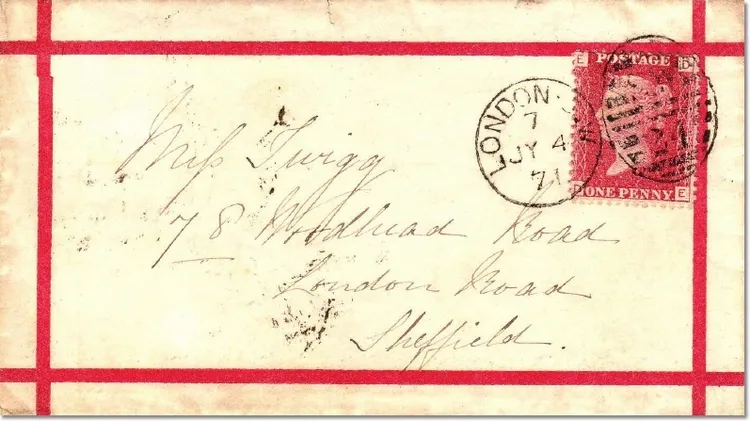 E POSTAGE D
LONDON
7
JY 4
71
ONE PENNY E
Miss Twigg
78 Woodhead Road
London Road
Sheffield.